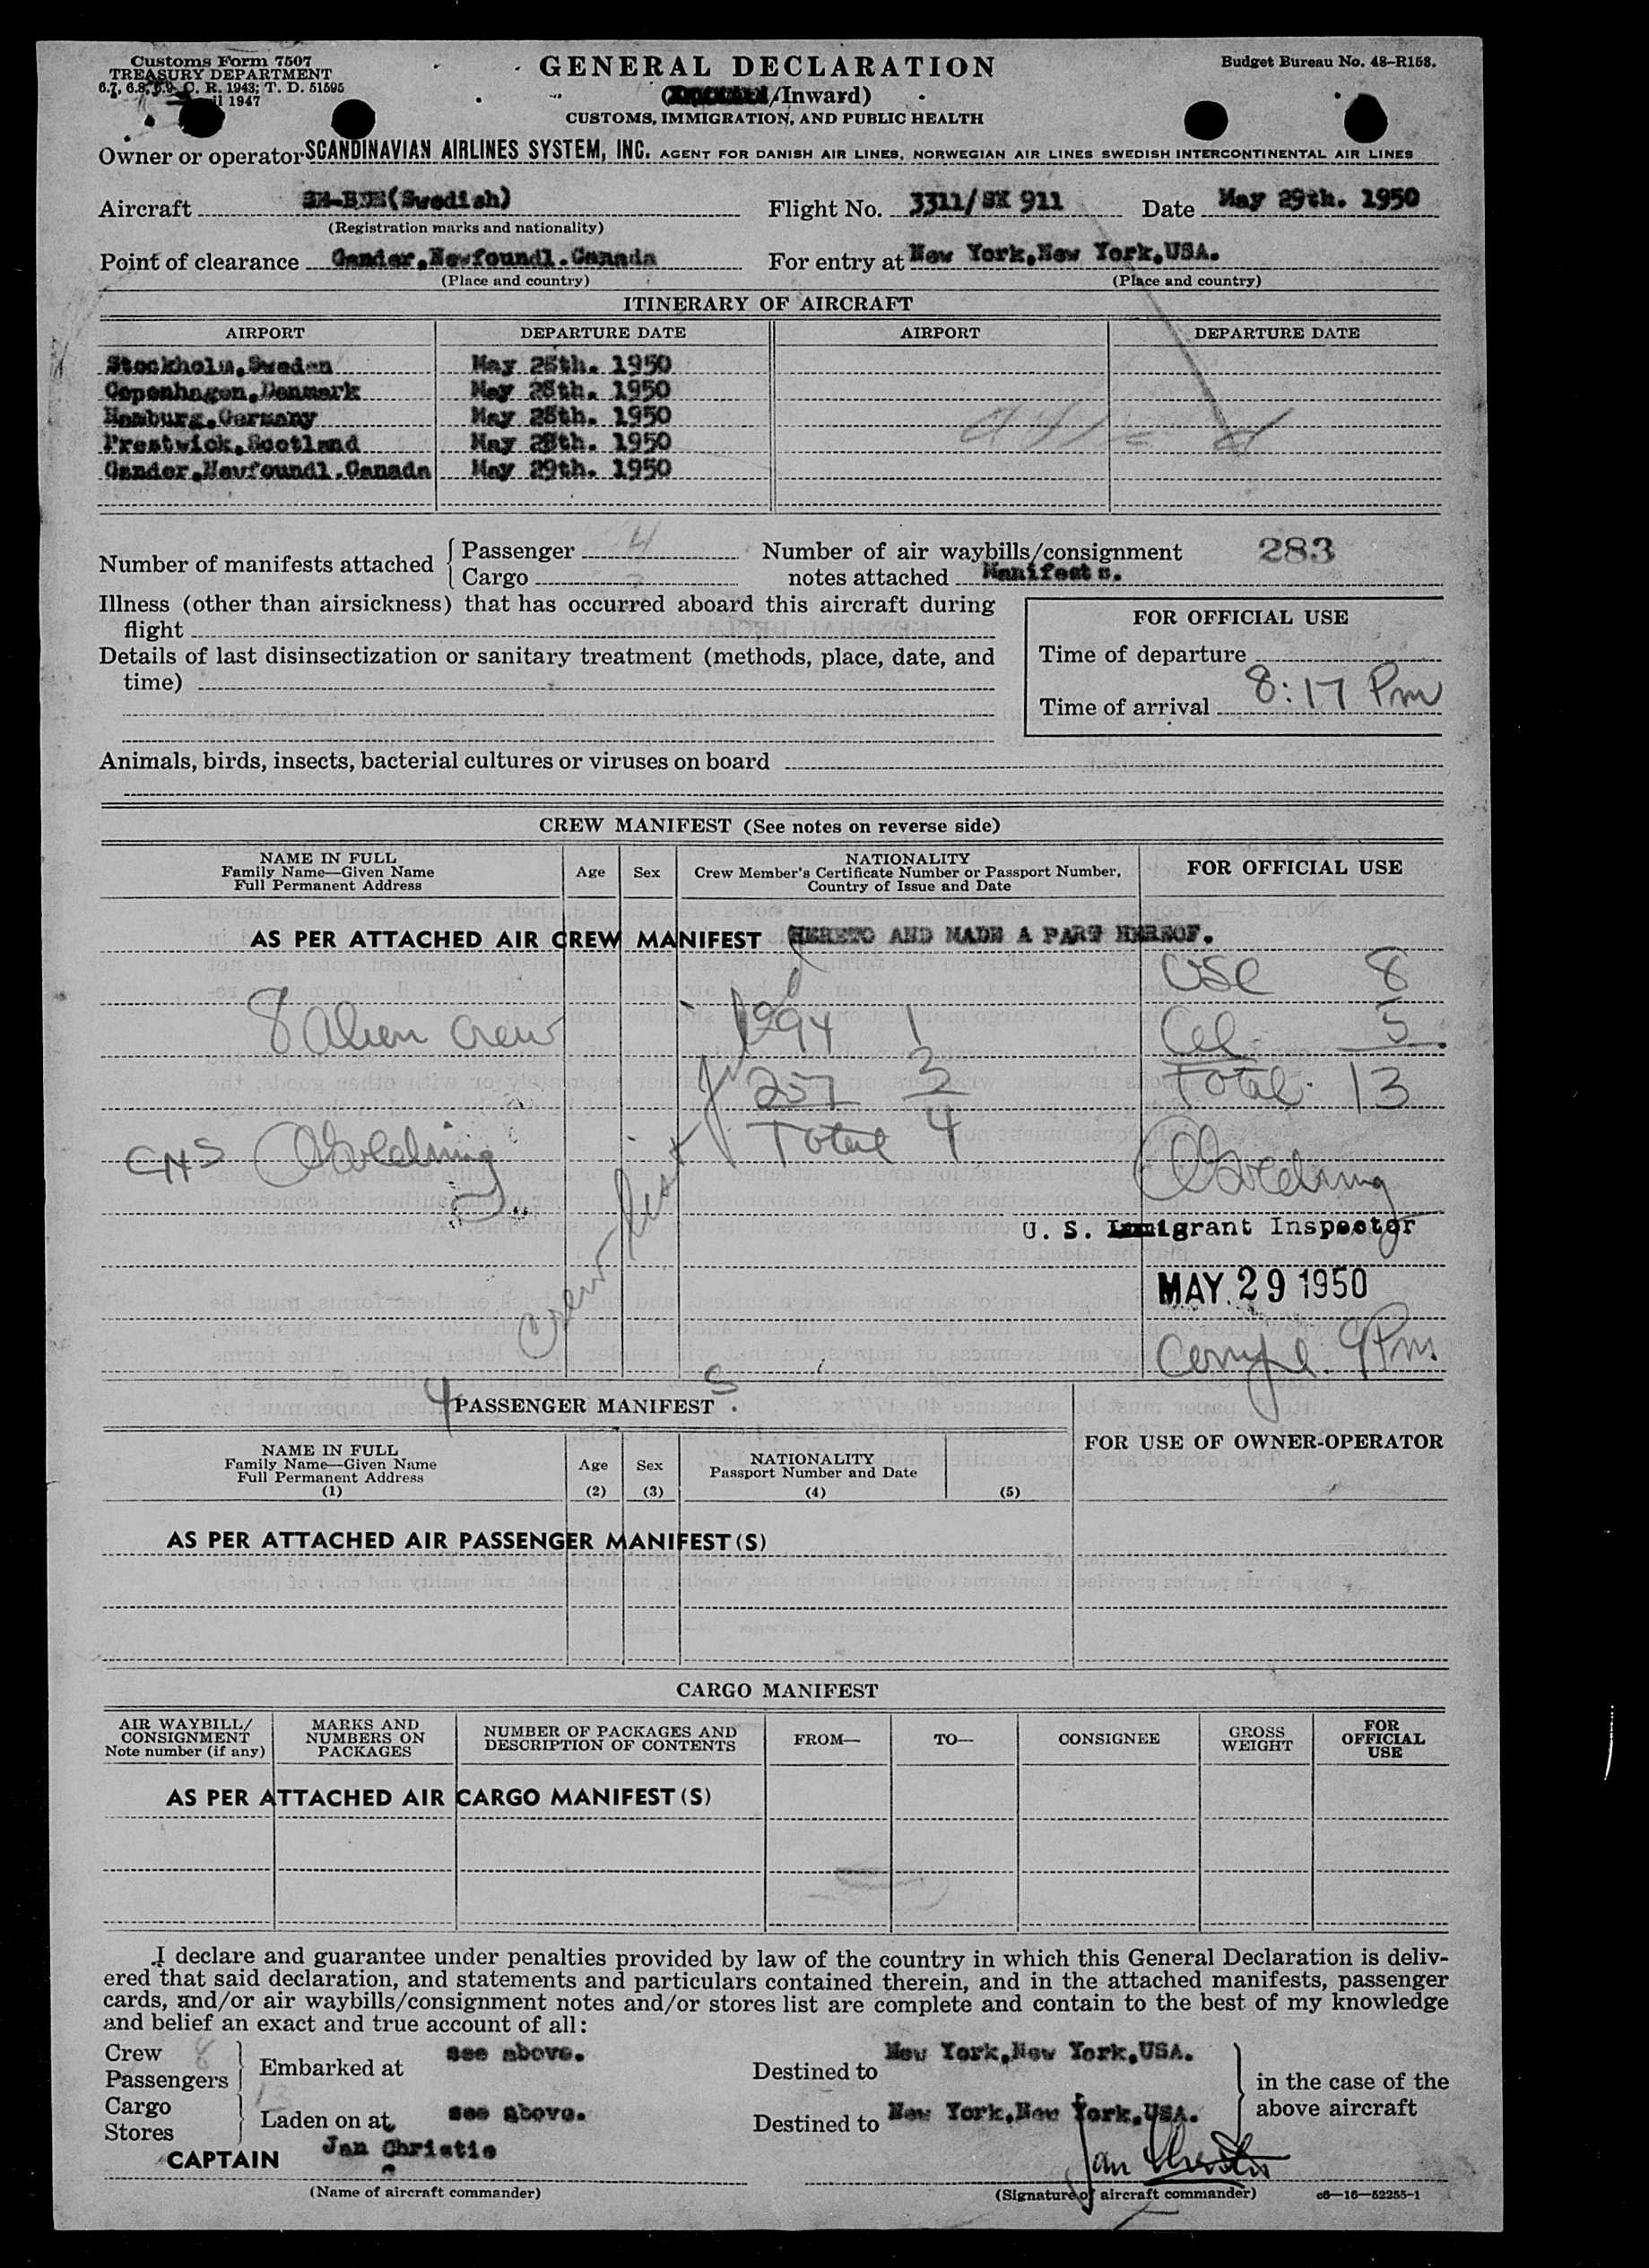 Customs Form 7507
TREASURY DEPARTMENT
6.7, 6.8, 6.9, C. R. 1943; T. D. 51595
1947
GENERAL DECLARATION
/Inward)
CUSTOMS, IMMIGRATION, AND PUBLIC HEALTH
Budget Bureau No. 48-R158.
Owner or operator SCANDINAVIAN AIRLINES SYSTEM, INC. AGENT FOR DANISH AIR LINES, NORWEGIAN AIR LINES SWEDISH INTERCONTINENTAL AIR LINES
Aircraft (Swedish) Flight No. 3311/SK 911 Date May 29th. 1950
(Registration marks and nationality)
Point of clearance Gander,Newfoundl.Canada For entry at New York,New York,USA.
(Place and country) (Place and country)
ITINERARY OF AIRCRAFT
AIRPORT DEPARTURE DATE AIRPORT DEPARTURE DATE
Stockholm,Sweden May 28th. 1950
Copenhagen,Denmark May 28th. 1950
Hamburg,Germany May 28th. 1950
Prestwick,Scotland May 28th. 1950
Gander,Newfoundl.Canada May 29th. 1950
Number of manifests attached { Passenger 4 Number of air waybills/consignment 283
Cargo notes attached Manifests.
Illness (other than airsickness) that has occurred aboard this aircraft during
flight
FOR OFFICIAL USE
Details of last disinsectization or sanitary treatment (methods, place, date, and
time)
Time of departure
Time of arrival 8:17 Pm
Animals, birds, insects, bacterial cultures or viruses on board
CREW MANIFEST (See notes on reverse side)
NAME IN FULL
Family Name—Given Name
Full Permanent Address
Age Sex
NATIONALITY
Crew Member's Certificate Number or Passport Number,
Country of Issue and Date
FOR OFFICIAL USE
AS PER ATTACHED AIR CREW MANIFEST HERETO AND MADE A PART HEREOF.
USC 8
8 Alien Crew 1994 1 Al 5
257 3 Total 13
Total 4
Crew list
U. S. Immigrant Inspector
MAY 29 1950
9 Pm.
4 PASSENGER MANIFEST S
NAME IN FULL
Family Name—Given Name
Full Permanent Address
(1)
Age
(2)
Sex
(3)
NATIONALITY
Passport Number and Date
(4) (5)
FOR USE OF OWNER-OPERATOR
AS PER ATTACHED AIR PASSENGER MANIFEST(S)
CARGO MANIFEST
AIR WAYBILL/
CONSIGNMENT
Note number (if any)
MARKS AND
NUMBERS ON
PACKAGES
NUMBER OF PACKAGES AND
DESCRIPTION OF CONTENTS
FROM— TO— CONSIGNEE
GROSS
WEIGHT
FOR
OFFICIAL
USE
AS PER ATTACHED AIR CARGO MANIFEST(S)
I declare and guarantee under penalties provided by law of the country in which this General Declaration is deliv-
ered that said declaration, and statements and particulars contained therein, and in the attached manifests, passenger
cards, and/or air waybills/consignment notes and/or stores list are complete and contain to the best of my knowledge
and belief an exact and true account of all:
Crew 8
Passengers 13
Embarked at see above. Destined to New York,New York,USA.
in the case of the
above aircraft
Cargo
Stores
Laden on at see above. Destined to New York,New York,USA.
CAPTAIN Jan Christie Jan Christie
(Name of aircraft commander) (Signature of aircraft commander) c6—16—52255-1